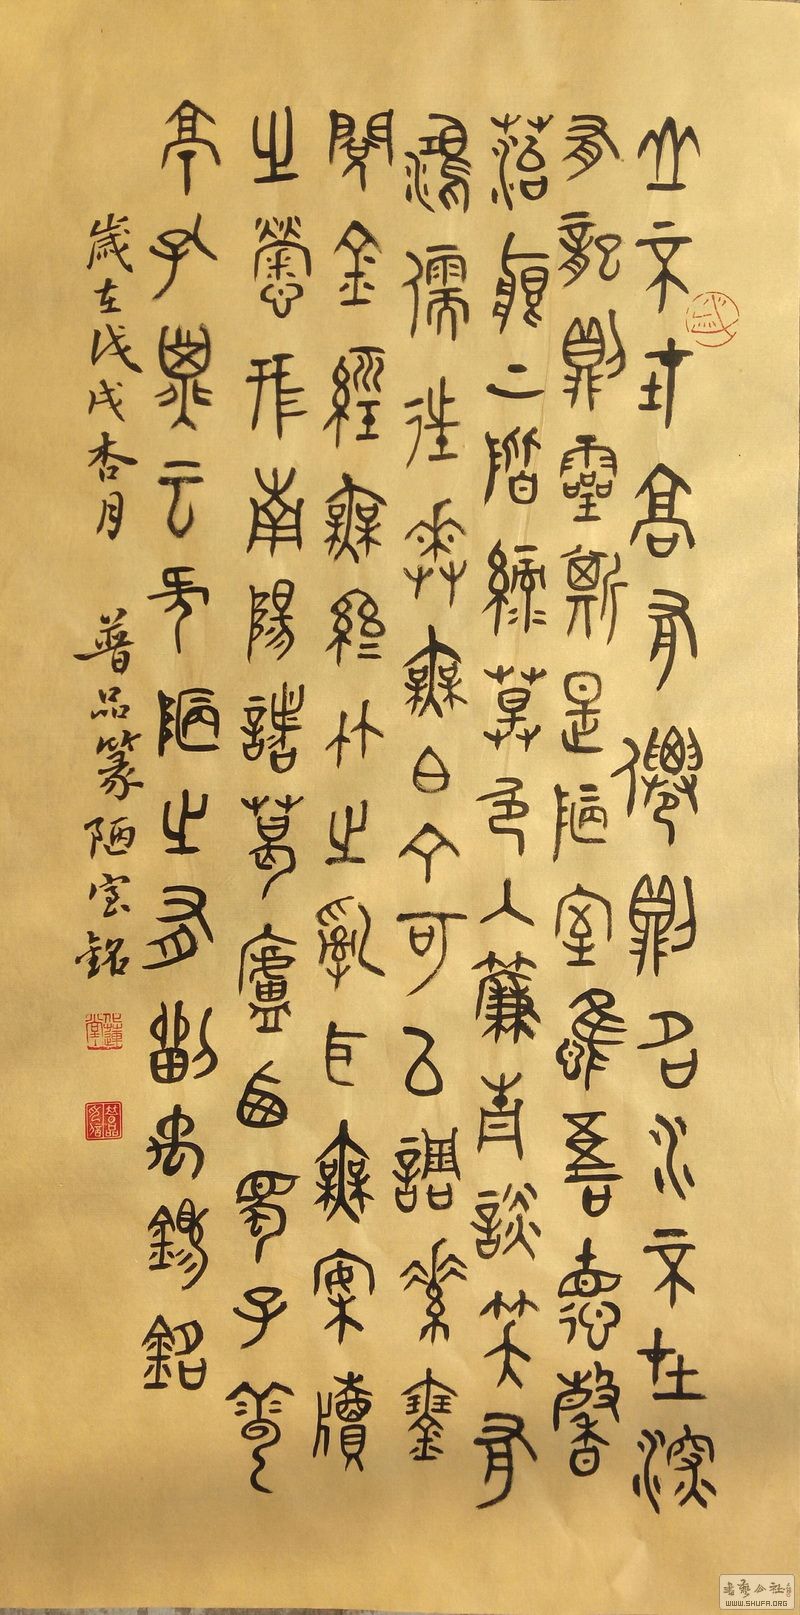 山不在高有僊則名水不在深
有龍則靈斯是陋室唯吾德馨
苔痕上階綠草色入簾青談笑有
鴻儒往來無白丁可以調素琴
閱金經無絲竹之亂耳無案牘
之勞形南陽諸葛廬西蜀子雲
亭孔子云何陋之有劉禹錫銘
歲在戊戌杏月 普品篆陋室銘
書藝公社
WWW.SHUFA.ORG